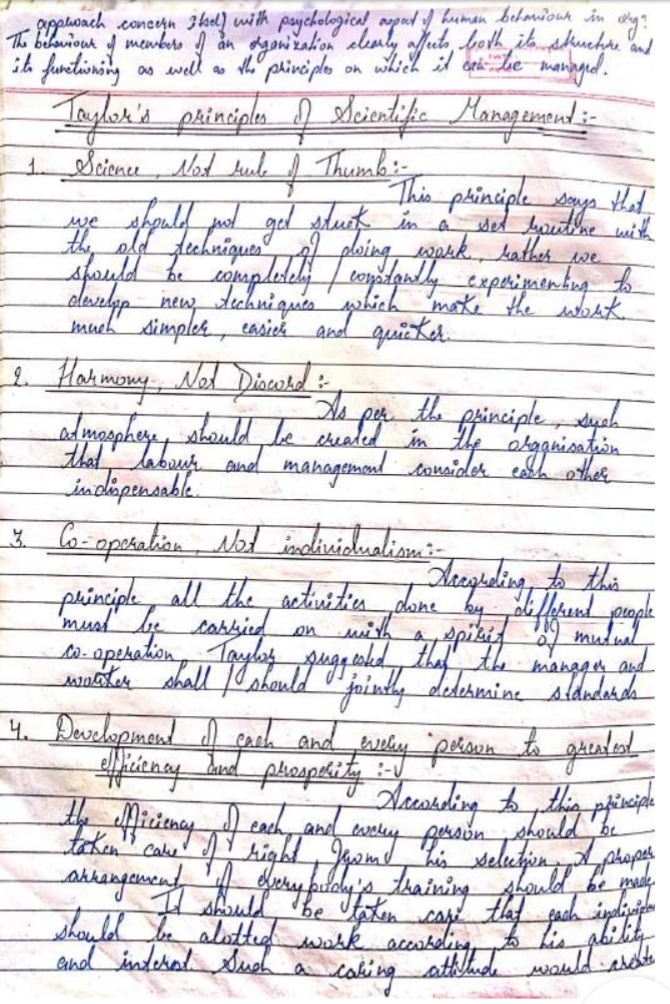 approach concern itself with psychological aspect of human behaviour in org?
The behaviour of members of an organization clearly affects both its structure and
its functioning as well as the principles on which it can be managed.
Taylor's principles of Scientific Management:-
1. Science, Not rule of Thumb:-
This principle says that
we should not get stuck in a set routine with
the old techniques of doing work, rather we
should be completely / constantly experimenting to
develop new techniques which make the work
much simpler, easier and quicker.
2. Harmony, Not Discord:-
As per the principle, such
atmosphere should be created in the organisation
that labour and management consider each other
indispensable.
3. Co-operation, Not individualism:-
According to this
principle all the activities done by different people
must be carried on with a spirit of mutual
co-operation. Taylor suggested that the manager and
worker shall / should jointly determine standards
4. Development of each and every person to greatest
efficiency and prosperity:-
According to this principle
the efficiency of each and every person should be
taken care of right from his selection. A proper
arrangement of everybody's training should be made.
It should be taken care that each
should be alotted work according to his ability
and interest Such a caring attitude would create